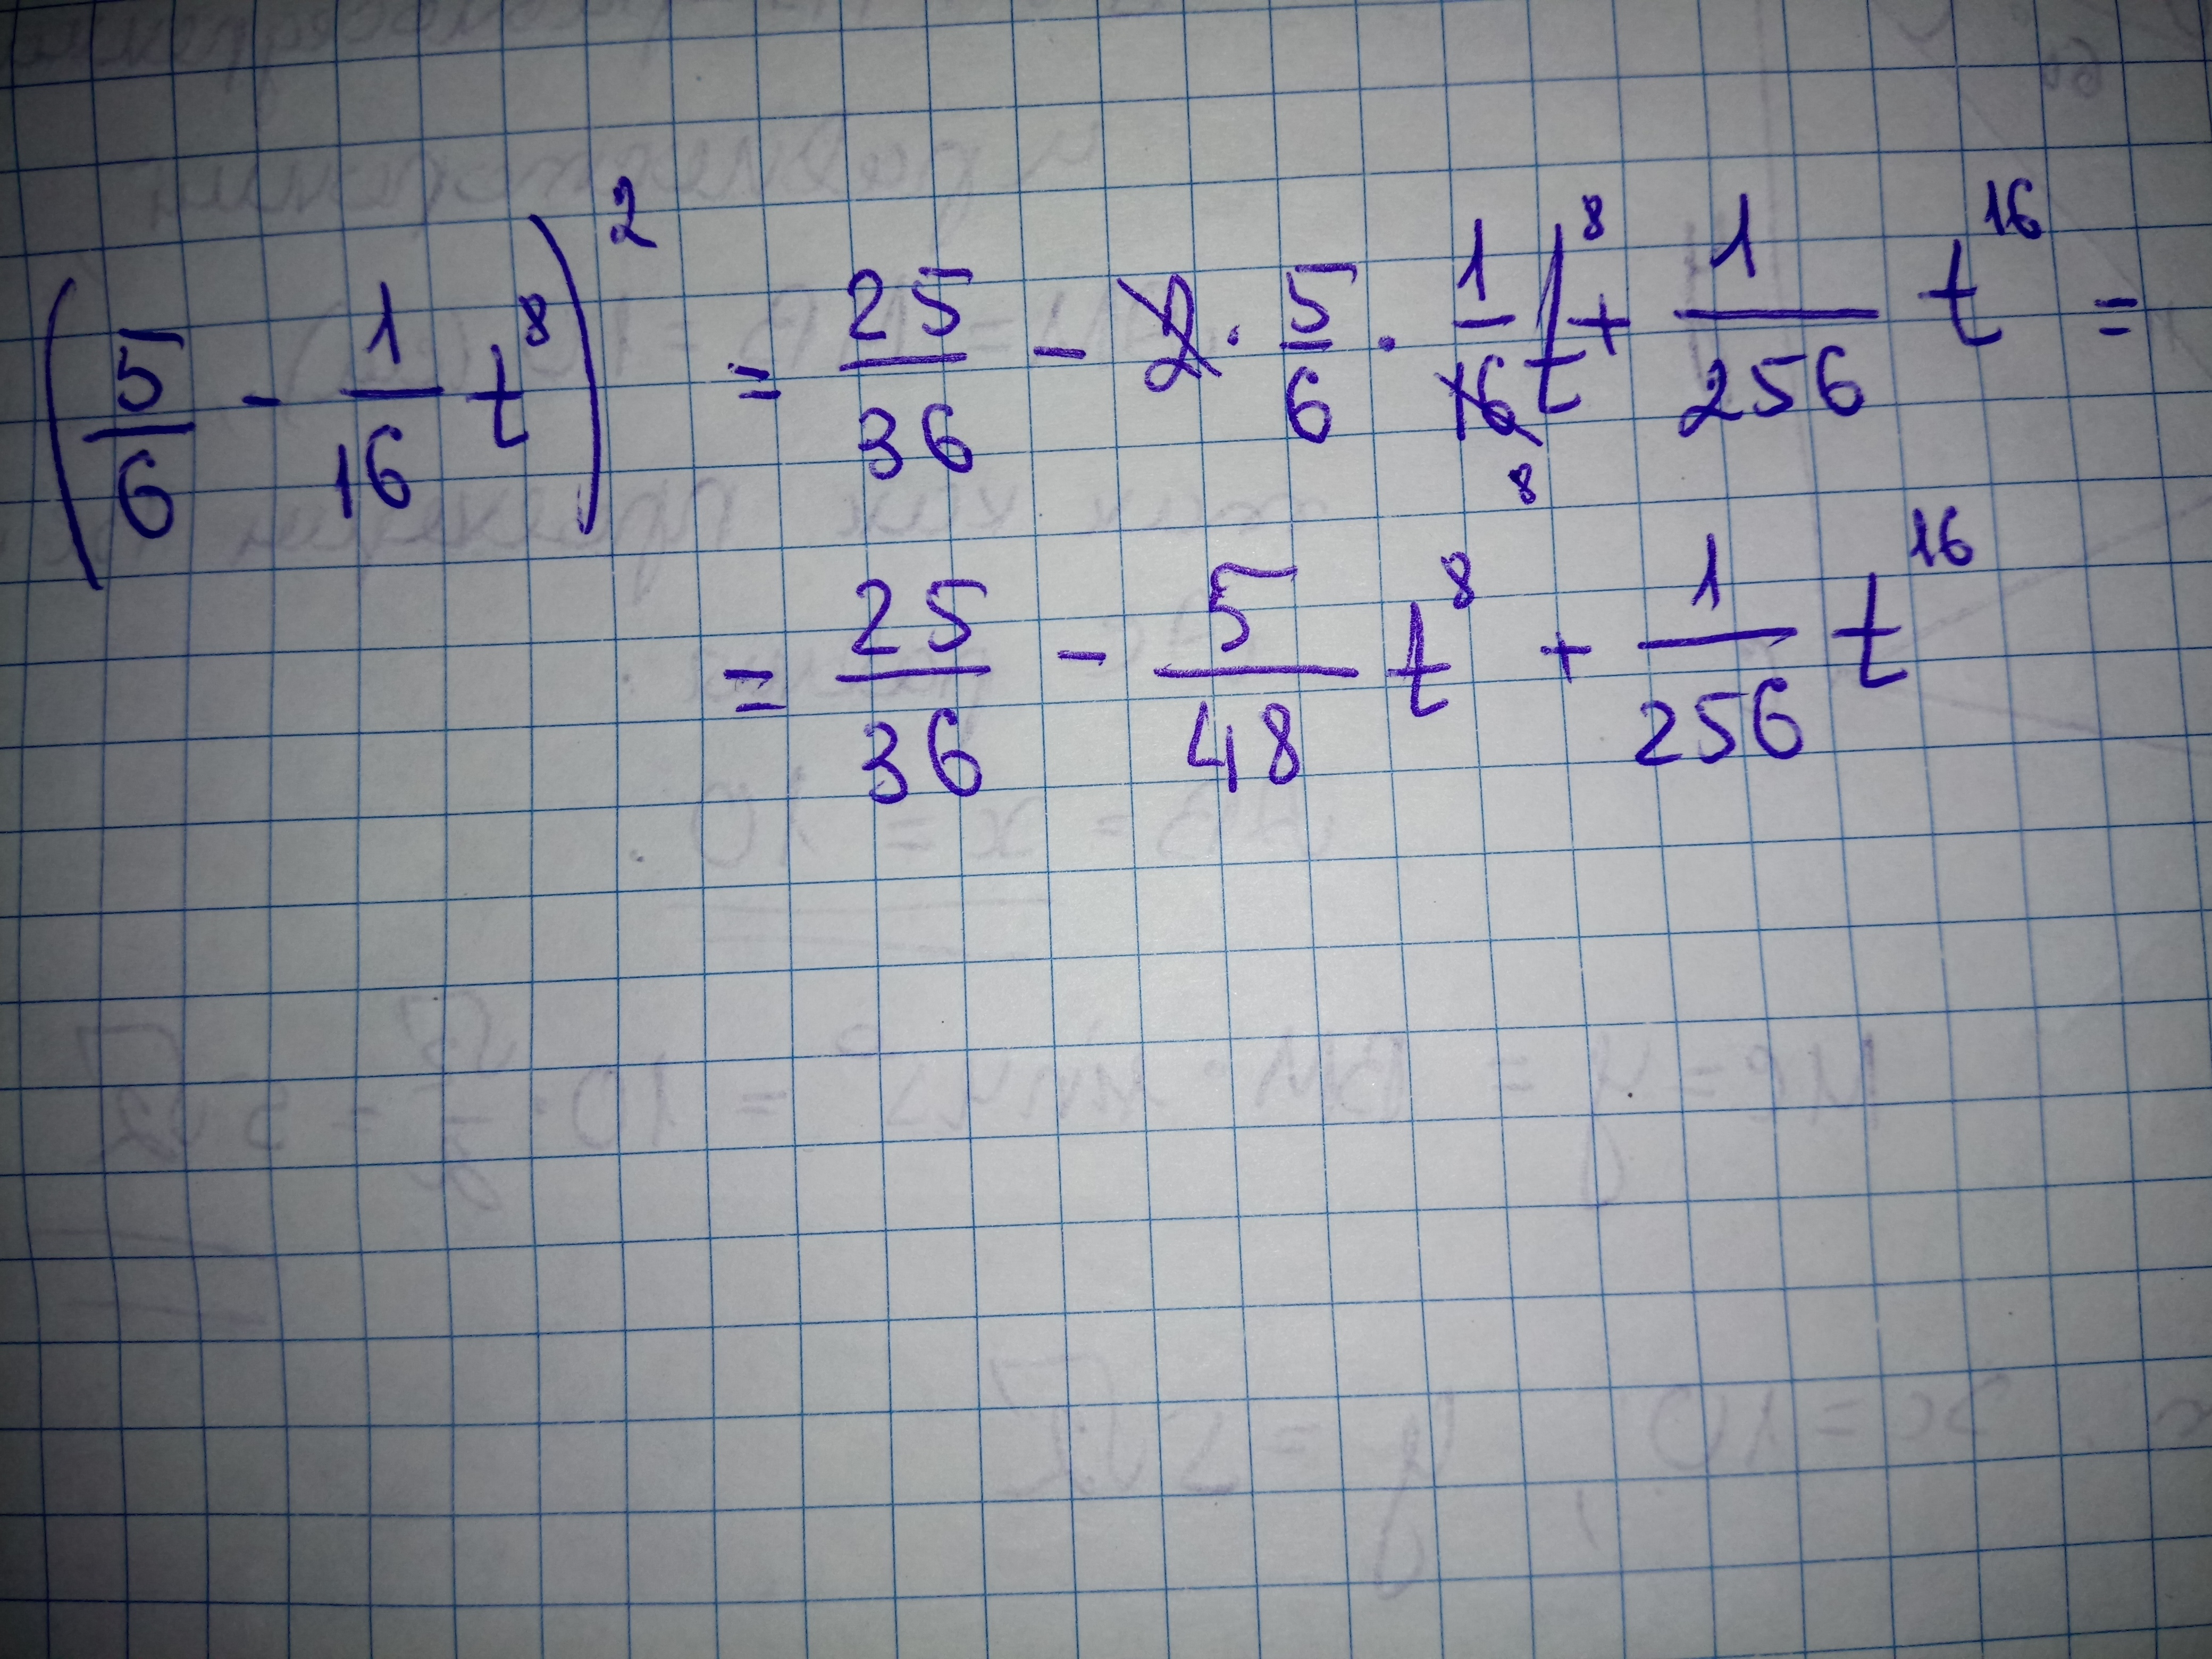 (5/6 - 1/16 t⁸)² = 25/36 - 2 · 5/6 · 1/16 t⁸ + 1/256 t¹⁶ =
8
= 25/36 - 5/48 t⁸ + 1/256 t¹⁶